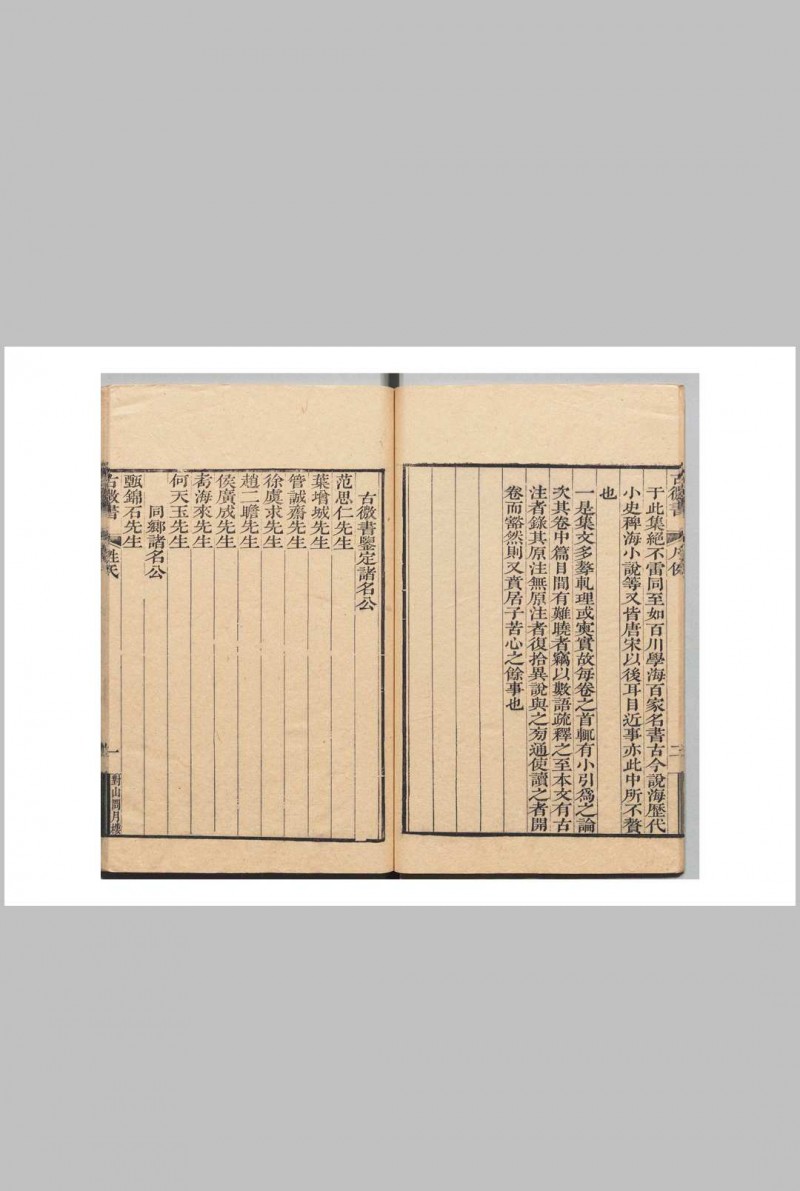 古微書
凡例
二
于此集絕不雷同至如百川學海百家名書古今說海歷代
小史稗海小說等又皆唐宋以後耳目近事亦此中所不贅
也
一是集文多摮軋理或寅實故每卷之首輒有小引爲之論
次其卷中篇目間有難曉者竊以數語疏釋之至本文有古
注者錄其原注無原注者復拾異說與之旁通使讀之者開
卷而豁然則又賁居子苦心之餘事也
古微書鑒定諸名公
范思仁先生
葉增城先生
管誠齋先生
徐虞求先生
趙二瞻先生
侯廣成先生
海來先生
何天玉先生
同鄉諸名公
甄錦石先生
古微書
姓氏
一
對山問月樓